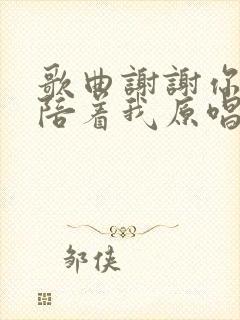 歌曲謝謝你
陪着我原唱
邹侠